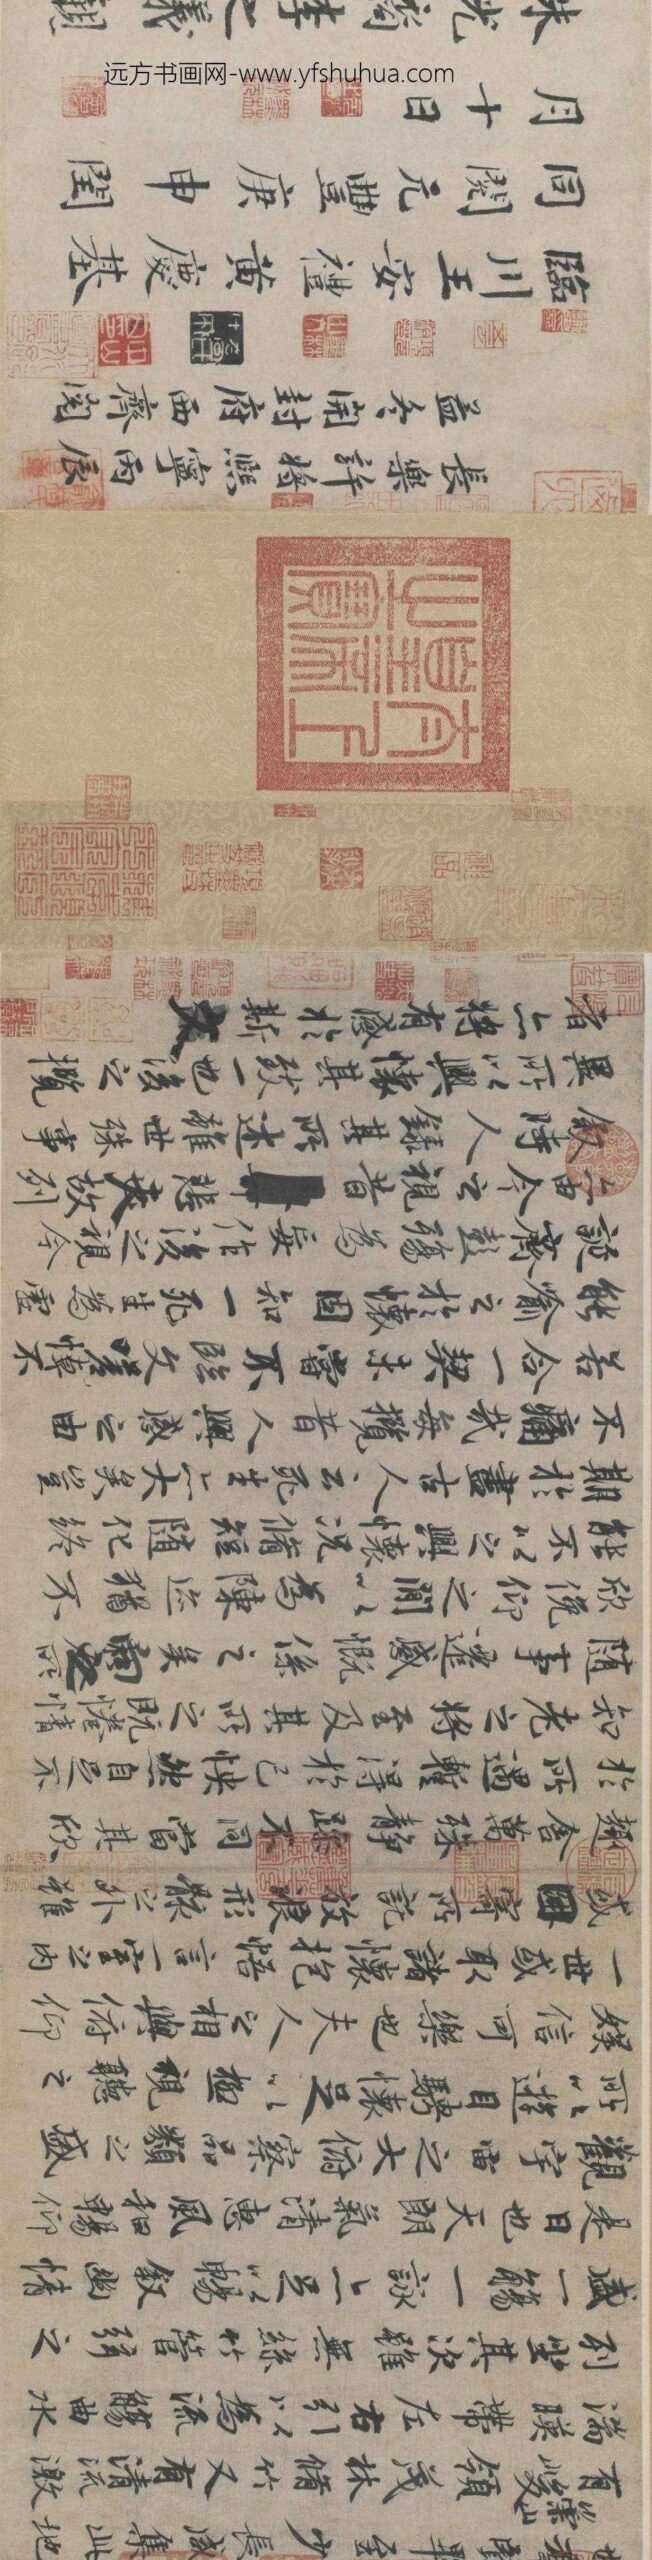 也羣賢畢至少長咸集此地
有崇山峻領茂林脩竹又有清流激
湍暎帶左右引以為流觴曲水
列坐其次雖無絲竹管弦之
盛一觴一詠亦足以暢敘幽情
是日也天朗氣清惠風和暢仰
觀宇宙之大俯察品類之盛
所以遊目騁懷足以極視聽之
娛信可樂也夫人之相與俯仰
一世或取諸懷抱悟言一室之內
或因寄所託放浪形骸之外雖
趣舍萬殊靜躁不同當其欣
於所遇暫得於己快然自足不
知老之將至及其所之既惓情
隨事遷感慨係之矣向之所
欣俛仰之間以為陳迹猶不
能不以之興懷況脩短隨化終
期於盡古人云死生亦大矣豈
不痛哉每攬昔人興感之由
若合一契未嘗不臨文嗟悼不
能喻之於懷固知一死生為虛
誕齊彭殤為妄作後之視今
亦由今之視昔悲夫故列
敘時人錄其所述雖世殊事
異所以興懷其致一也後之攬
者亦將有感於斯文
太上皇帝之寶
長樂許將熙寧丙辰
孟冬開封府西齋閱
臨川王安禮黃慶基
同閱元豐庚申閏
月十日
朱光裔李之儀觀
远方书画网-www.yfshuhua.com